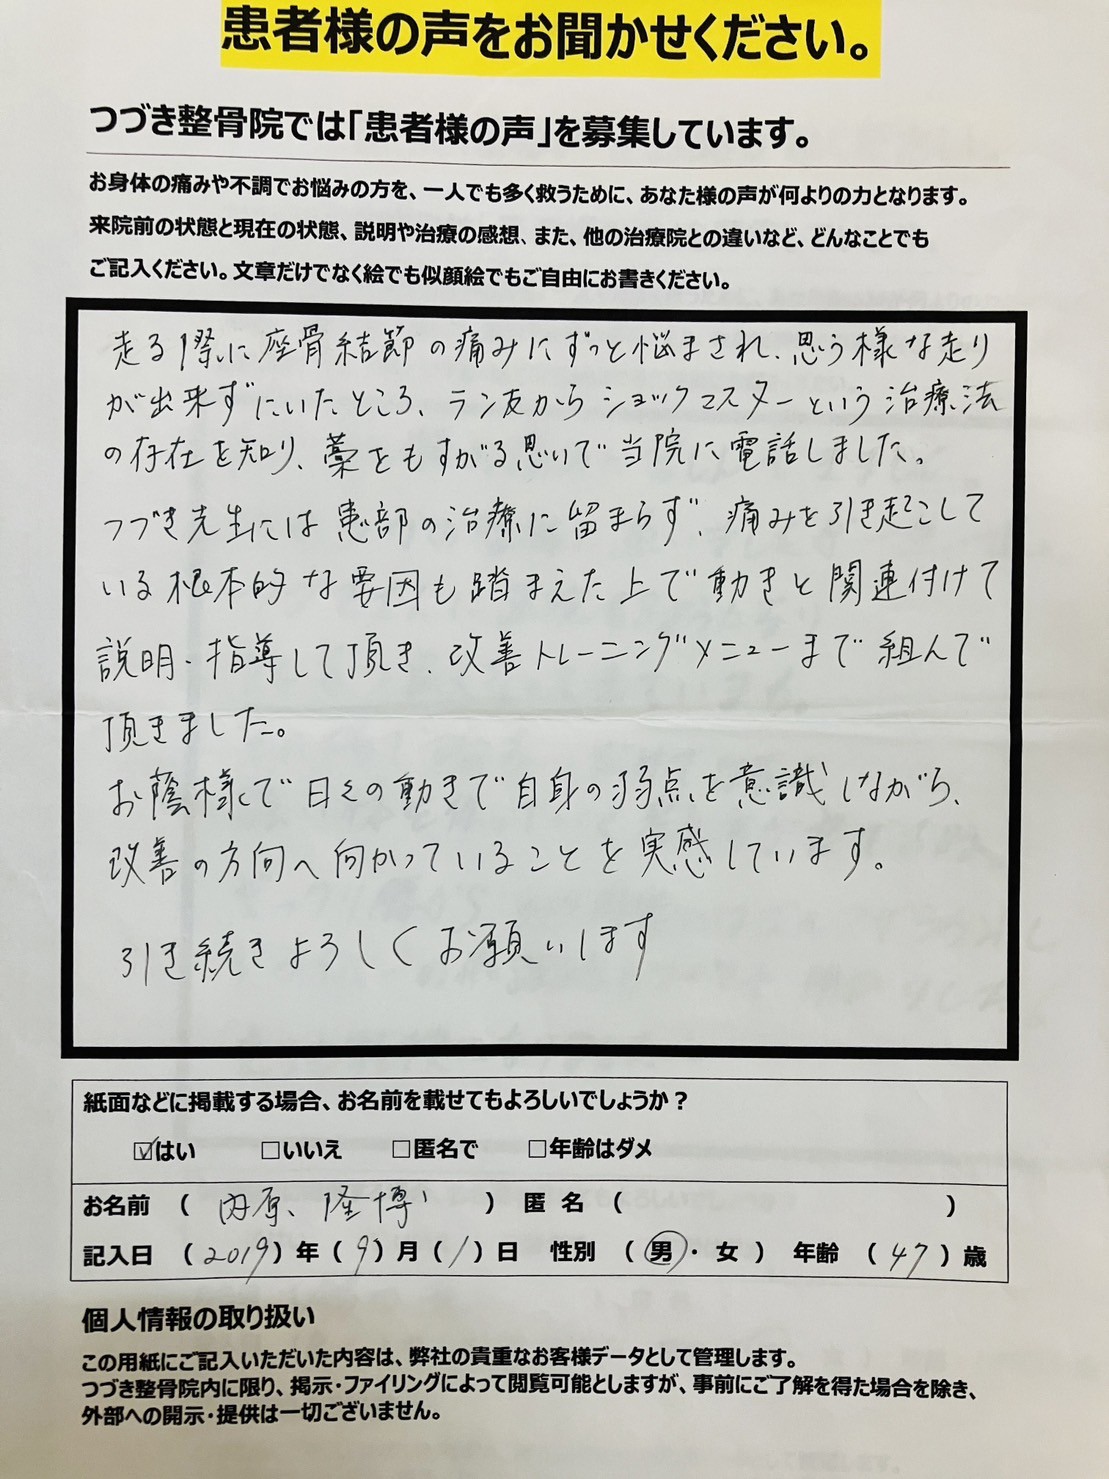 患者様の声をお聞かせください。
つづき整骨院では「患者様の声」を募集しています。
お身体の痛みや不調でお悩みの方を、一人でも多く救うために、あなた様の声が何よりの力となります。
来院前の状態と現在の状態、説明や治療の感想、また、他の治療院との違いなど、どんなことでも
ご記入ください。文章だけでなく絵でも似顔絵でもご自由にお書きください。
走る際に座骨結節の痛みにずっと悩まされ、思う様な走り
が出来ずにいたところ、ラン友からショックマスターという治療法
の存在を知り、藁をもすがる思いで当院に電話しました。
つづき先生には患部の治療に留まらず、痛みを引き起こして
いる根本的な要因も踏まえた上で動きと関連付けて
説明・指導して頂き、改善トレーニングメニューまで組んで
頂きました。
お蔭様で日々の動きで自身の弱点を意識しながら、
改善の方向へ向かっていることを実感しています。
引き続きよろしくお願いします
紙面などに掲載する場合、お名前を載せてもよろしいでしょうか？
☑はい □いいえ □匿名で □年齢はダメ
お名前 （ 内原 隆博 ） 匿 名 （ ）
記入日 （2019）年（9）月（1）日 性別 （ 男・女 ） 年齢 （ 47 ）歳
個人情報の取り扱い
この用紙にご記入いただいた内容は、弊社の貴重なお客様データとして管理します。
つづき整骨院内に限り、掲示・ファイリングによって閲覧可能としますが、事前にご了解を得た場合を除き、
外部への開示・提供は一切ございません。